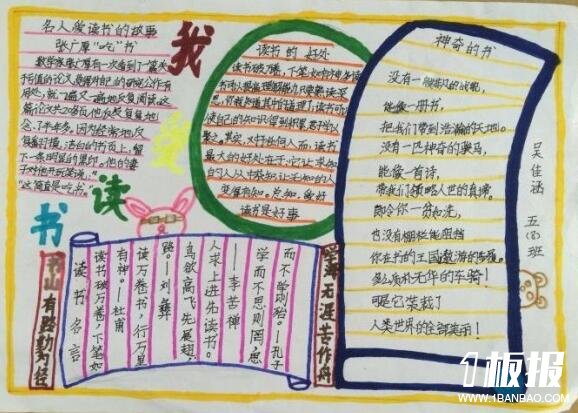 名人爱读书的故事
张广厚"吃"书
数学家张广厚有一次看到了一篇关
于亏值的论文,觉得对自己的研究工作有
用处,就一遍又一遍地反复阅读。这
篇论文共20多页,他反反复复地
念了半年多。因为经常地反
复翻摸,洁白的书页上,留
下一条明显的黑印。他的妻
子对他开玩笑说,
"这简直是吃书。"
我
爱
读
书
读书的好处
读书破万卷,下笔如有神,多读
书可以
读书可以
使自己的知识得到积累,君子学以
聚之。其实,对于任何人而言,读书
最大的好处在于:它让求知
的人从中获知,让无知的人
变得有知。总知,爱好
读书是好事
神奇的书
没有一艘非凡的战舰,
能像一册书,
把我们带到浩瀚的天地。
没有一匹神奇的骏马,
能像一首诗,
带我们领略人世的真谛。
即令你一贫如洗,
也没有栅栏能阻挡
你在书的王国遨游的步履。
多么质朴无华的车骑!
可是它装载了
人类世界的全部美丽!
吴佳涵 五(8)班
书山有路勤为径
学海无涯苦作舟
读书名言
读书破万卷,下笔如
有神。—杜甫
读万卷书,行万里
路。—刘彝
鸟欲高飞先展翅,
人求上进先读书。
—李苦禅
学而不思则罔,思
而不学则殆。—孔子
板报
WWW.1BANBAO.COM